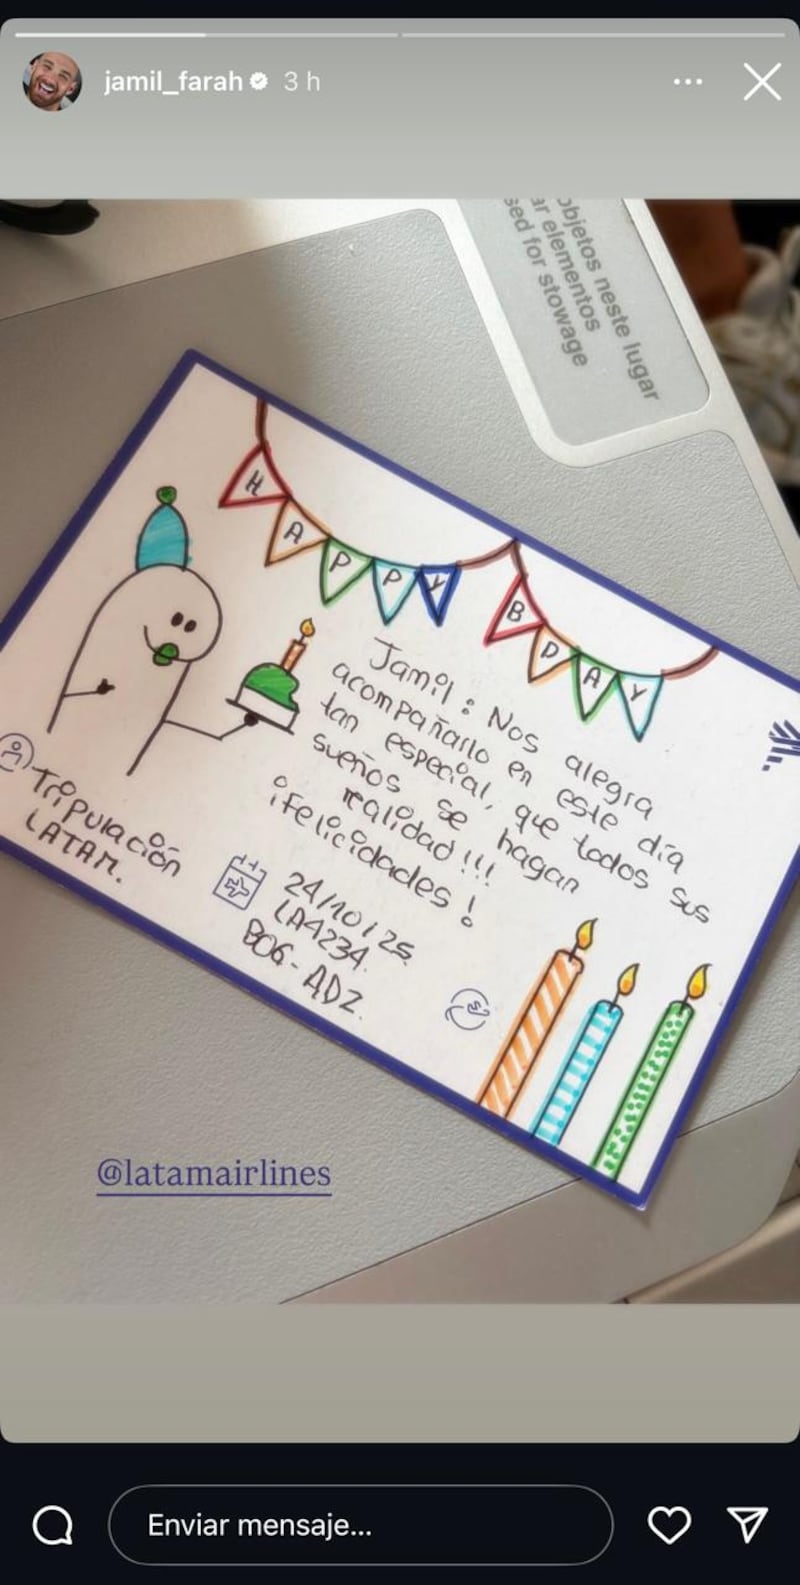 jamil_farah 3 h
objetos neste lugar
ar elementos
sed for stowage
HAPPY BDAY
Jamil: Nos alegra
acompañarlo en este día
tan especial, que todos sus
sueños se hagan
realidad!!!
¡Felicidades!
Tripulación
LATAM.
24/10/25
LA4234.
BOG-ADZ.
@latamairlines
Enviar mensaje...